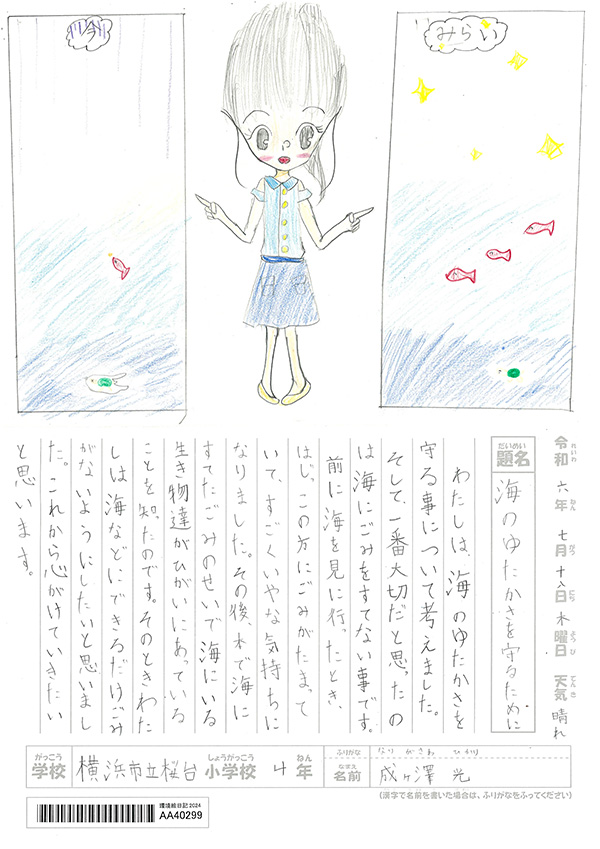 今
みらい
令和六年七月十八日木曜日 天気 晴れ
れいわ ねん がつ にち ようび てんき
だいめい
題名
海のゆたかさを守るために
わたしは、海のゆたかさを
守る事について考えました。
そして、一番大切だと思ったの
は海にごみをすてない事です。
前に海を見に行ったとき、
はじっこの方にごみがたまって
いて、すごくいやな気持ちに
なりました。その後、本で海に
すてたごみのせいで海にいる
生き物達がひがいにあっている
ことを知ったのです。そのときわた
しは海などにできるだけごみ
がないようにしたいと思いまし
た。これから心がけていきたい
と思います。
がっこう しょうがっこう ねん
学校 横浜市立桜台小学校 4年
ふりがな なりがさわ ひかり
なまえ
名前 成ヶ澤 光
(漢字で名前を書いた場合は、ふりがなをふってください)
環境絵日記2024
AA40299